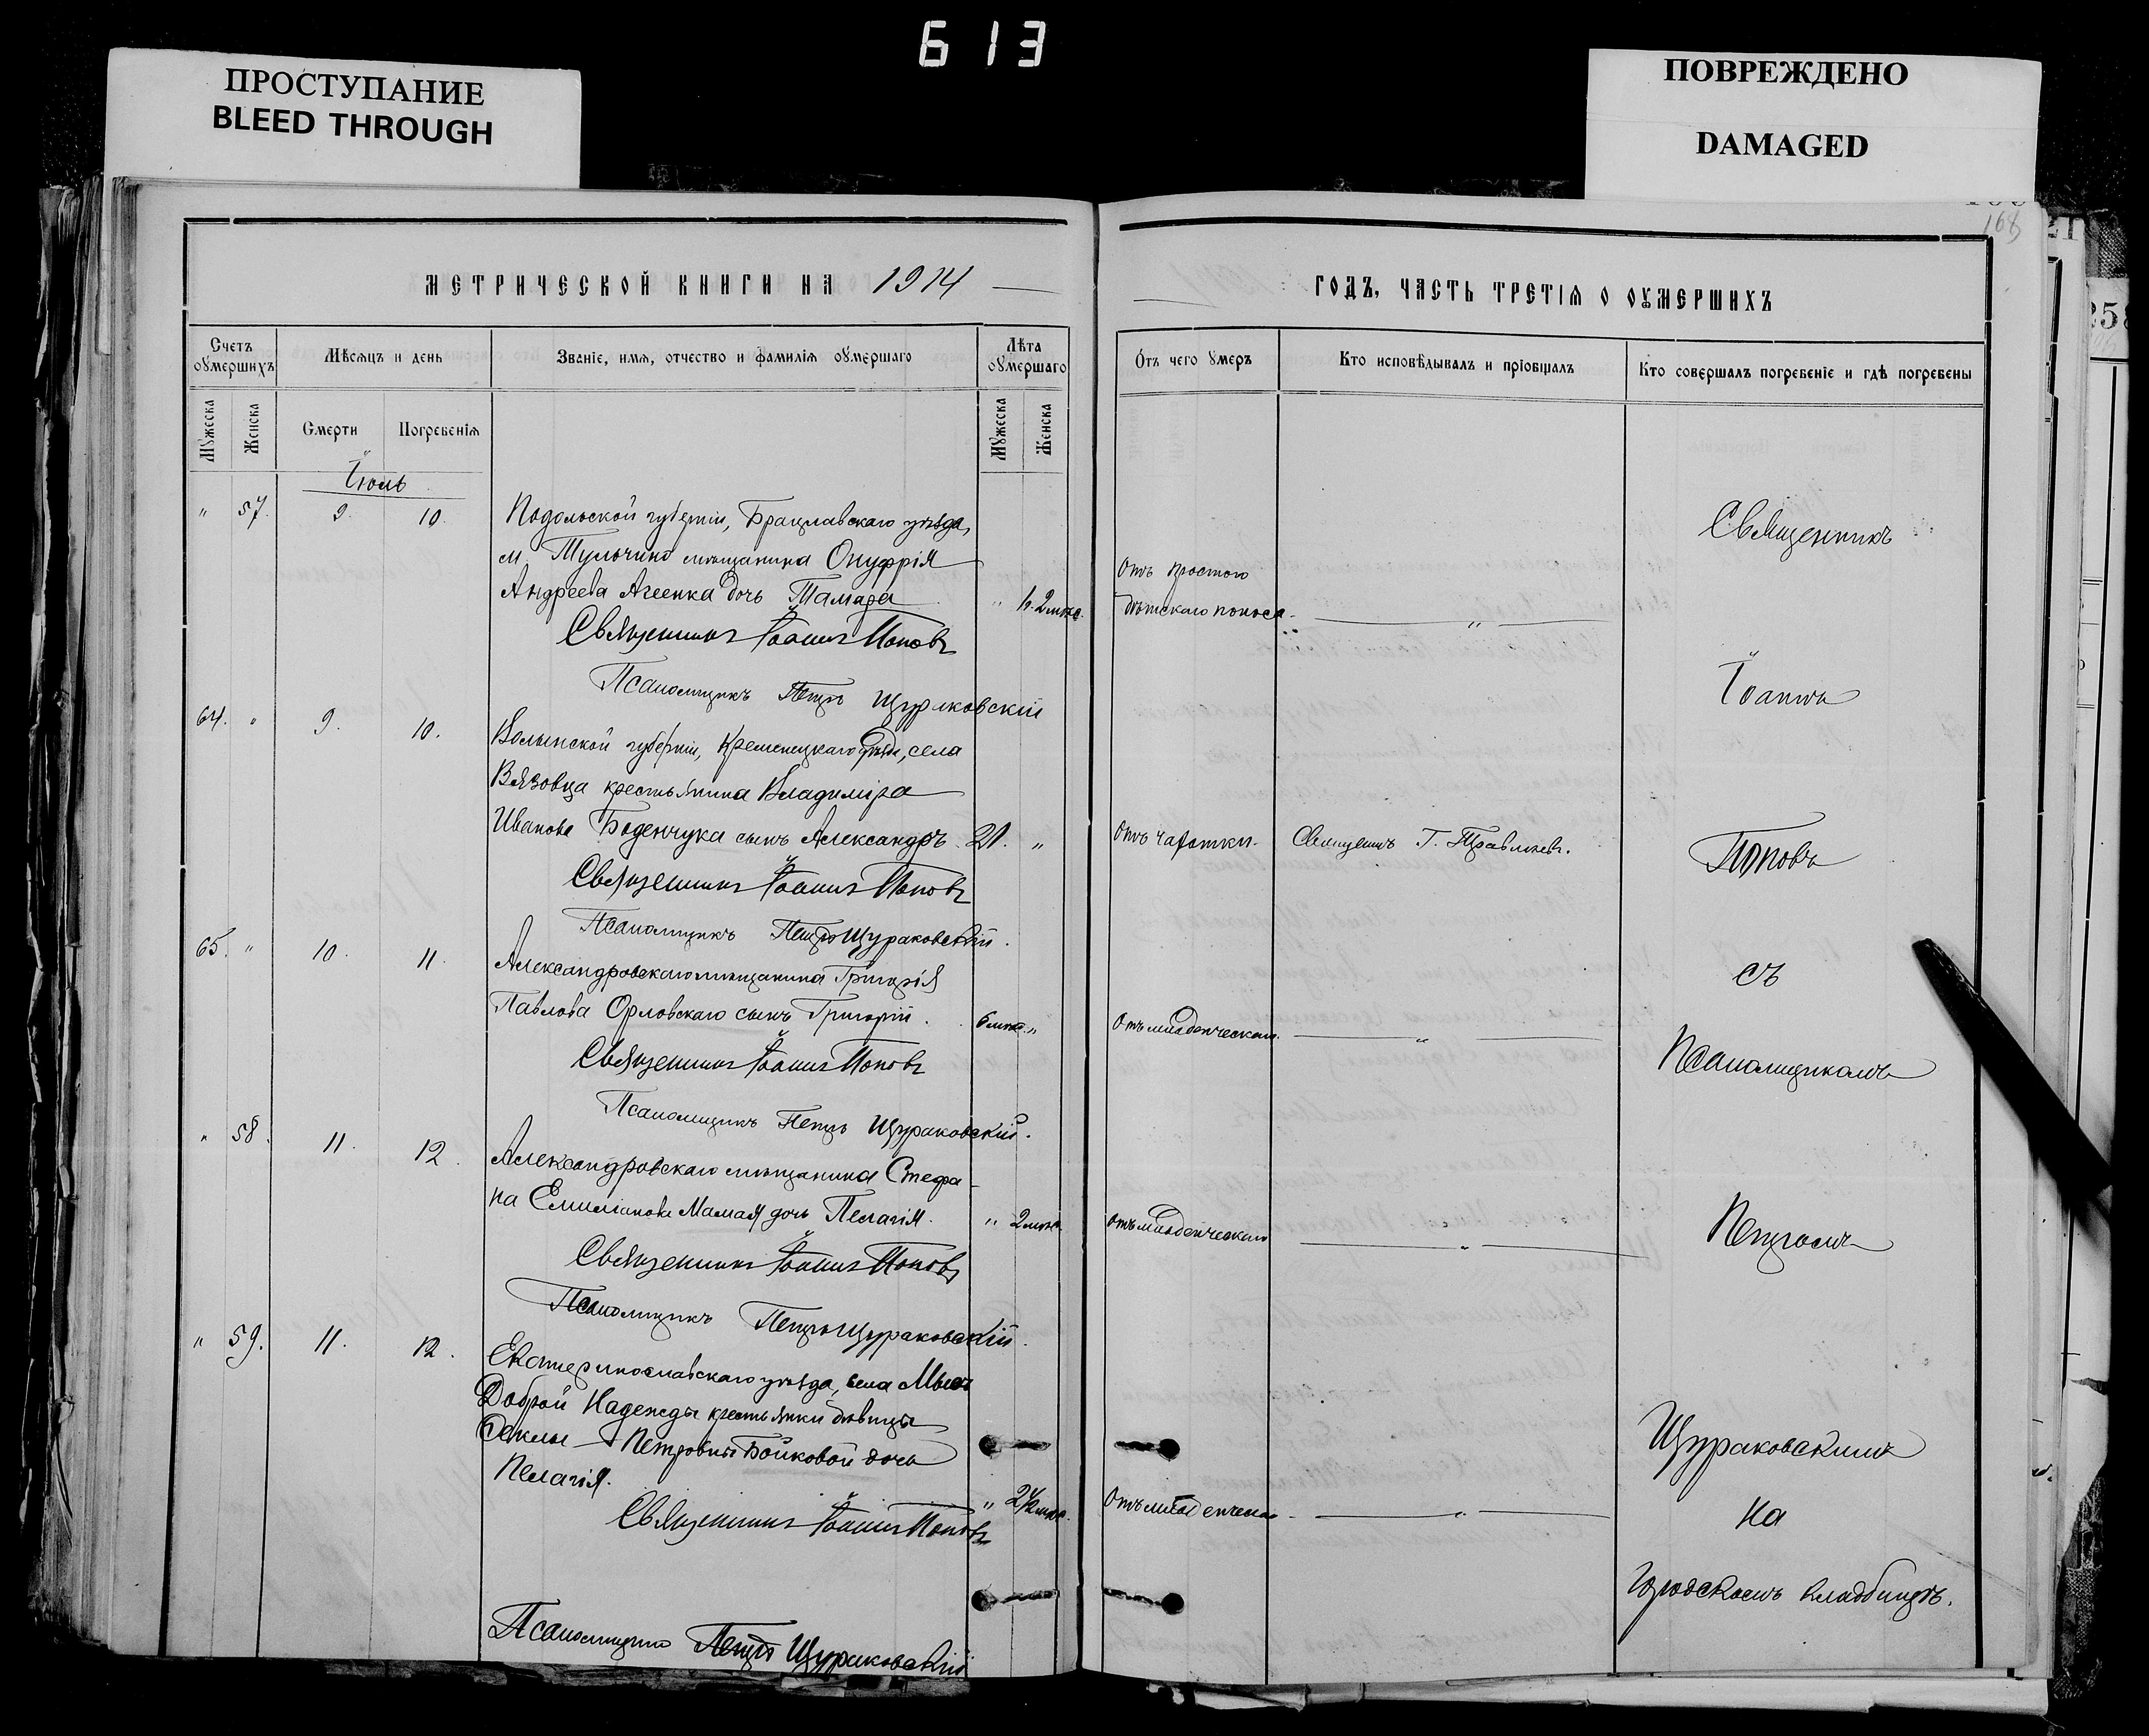 613
ПРОСТУПАНИЕ
BLEED THROUGH
ПОВРЕЖДЕНО
DAMAGED
168
МЕТРИЧЕСКОЙ КНИГИ НА 1914
ГОДЪ, ЧАСТЬ ТРЕТІЯ О ОУМЕРШИХЪ
Счетъ оумершихъ
Мѣсяцъ и день
Званіе, имя, отчество и фамилія оумершаго
Лѣта оумершаго
Отъ чего умеръ
Кто исповѣдывалъ и пріобщалъ
Кто совершалъ погребеніе и гдѣ погребены
Мужеска
Женска
Смерти
Погребенія
Мужеска
Женска
Іюль
" 57. 9. 10. Подольской губерніи, Брацлавскаго уѣзда,
м. Тульчина мѣщанина Онуфрія
Андреева Агеенка дочь Тамара
Отъ простого
дѣтскаго поноса.
Священникъ Іоаннъ Поповъ
Псаломщикъ Петръ Щураковскій
64. " 9. 10. Волынской губерніи, Кременецкаго уѣзда, села
Вязовца крестьянина Владиміра
Иванова Боденчука сынъ Александръ. 21. " Отъ чахотки. Священникъ Г. Травлинев.
Священникъ Іоаннъ Поповъ
Псаломщикъ Петръ Щураковскій.
65. " 10. 11. Александровскаго мѣщанина Григорія
Павлова Орловскаго сынъ Григорій. 6 мѣс. " Отъ младенческаго. "
Священникъ Іоаннъ Поповъ
Псаломщикъ Петръ Щураковскій.
" 58. 11. 12. Александровскаго мѣщанина Стефа-
на Емиліанова Мамая дочь Пелагія. " 2 мѣс. Отъ младенческаго "
Священникъ Іоаннъ Поповъ
Псаломщикъ Петръ Щураковскій.
" 59. 11. 12. Екатеринославскаго уѣзда, села Мысъ
Доброй Надежды крестьянки дѣвицы
Ѳеклы Петровны Бойковой дочь
Пелагія. " 2½ мѣс. Отъ младенческаго "
Священникъ Іоаннъ Поповъ
Псаломщикъ Петръ Щураковскій
Священникъ
Іоаннъ
Поповъ
съ
Псаломщикомъ
Петромъ
Щураковскимъ
на
городскомъ кладбищѣ.